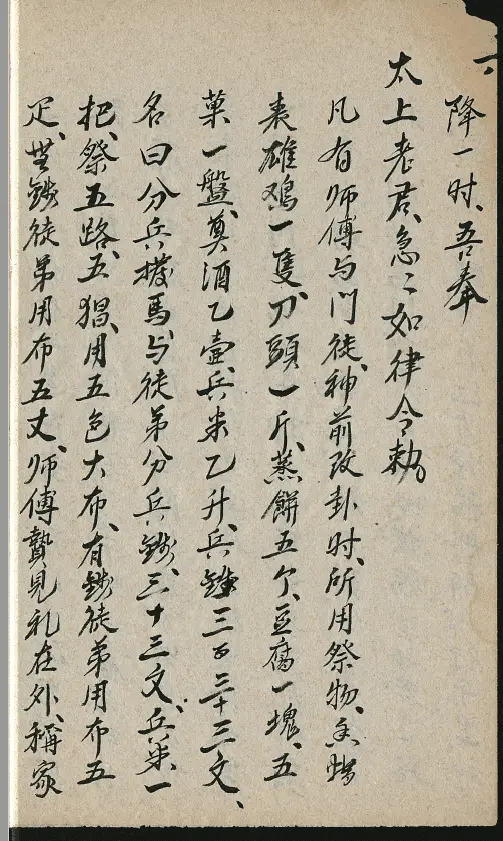 降一时、吾奉
太上老君、急〻如律令勅
凡有师傅与门徒、神前改卦时、所用祭物、香蜡
表雄鸡一隻、刀頭一斤、蒸餅五个、豆腐一塊、五
菓一盤、奠酒乙壷、兵米乙升、兵錢三百三十三文、
名曰分兵撥馬、与徒弟分兵錢、三十三文、兵米、一
把、祭五路、五猖、用五色大布、有錢徒弟用布五
疋、無錢徒弟用布五丈、师傅贄見礼在外、稱家